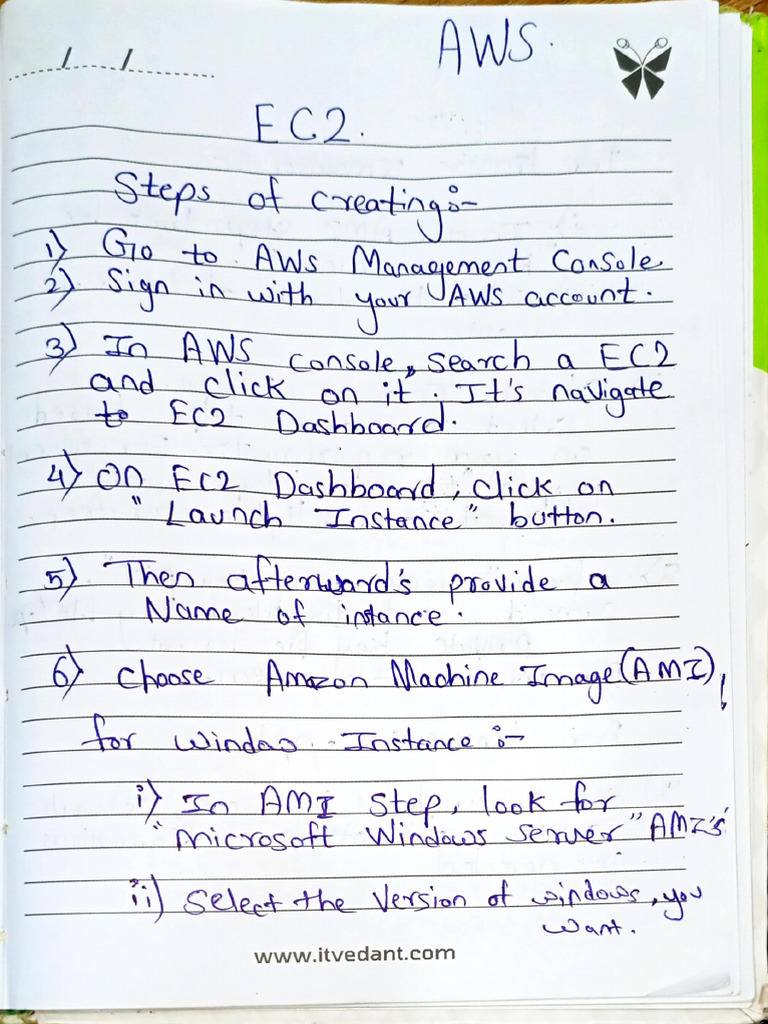 AWS.
EC2.
Steps of creating:-
1) Go to AWS Management Console
2) Sign in with your AWS account.
3) In AWS console, search a EC2
and click on it. It's navigate
to EC2 Dashboard.
4) On EC2 Dashboard, click on
"Launch Instance" button.
5) Then afterward's provide a
Name of instance.
6) Choose Amazon Machine Image (AMI),
for Windao Instance :-
i) In AMI step, look for
"Microsoft Windows Server" AMI's
ii) Select the Version of windows, you
want.
www.itvedant.com